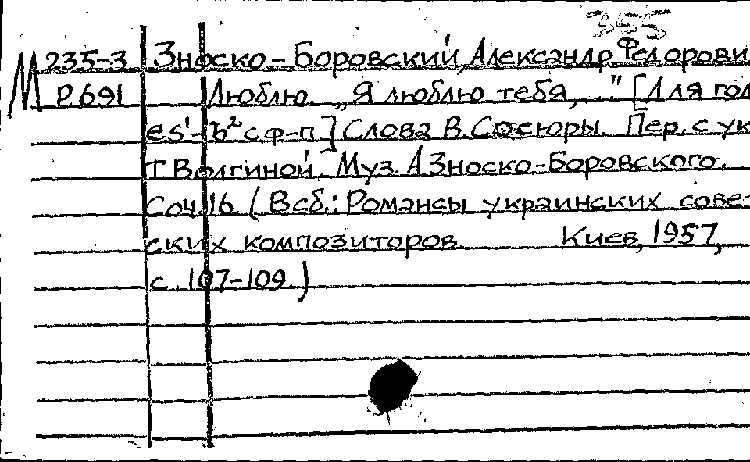 355
М 235-3 Зноско-Боровский, Александр Федорови
Р691 Люблю. „Я люблю тебя,..." [Для гол
es¹-b² с ф-п.] Слова В.Сосюры. Пер. с ук
Т.Волгиной. Муз. А.Зноско-Боровского.
Соч.16 (В сб.: Романсы украинских сове-
ских композиторов. Киев, 1957,
с. 107-109.)